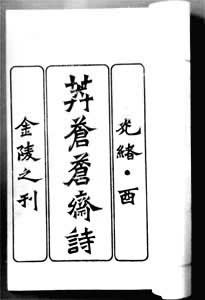 光緒·酉
莽蒼蒼齋詩
金陵之刊